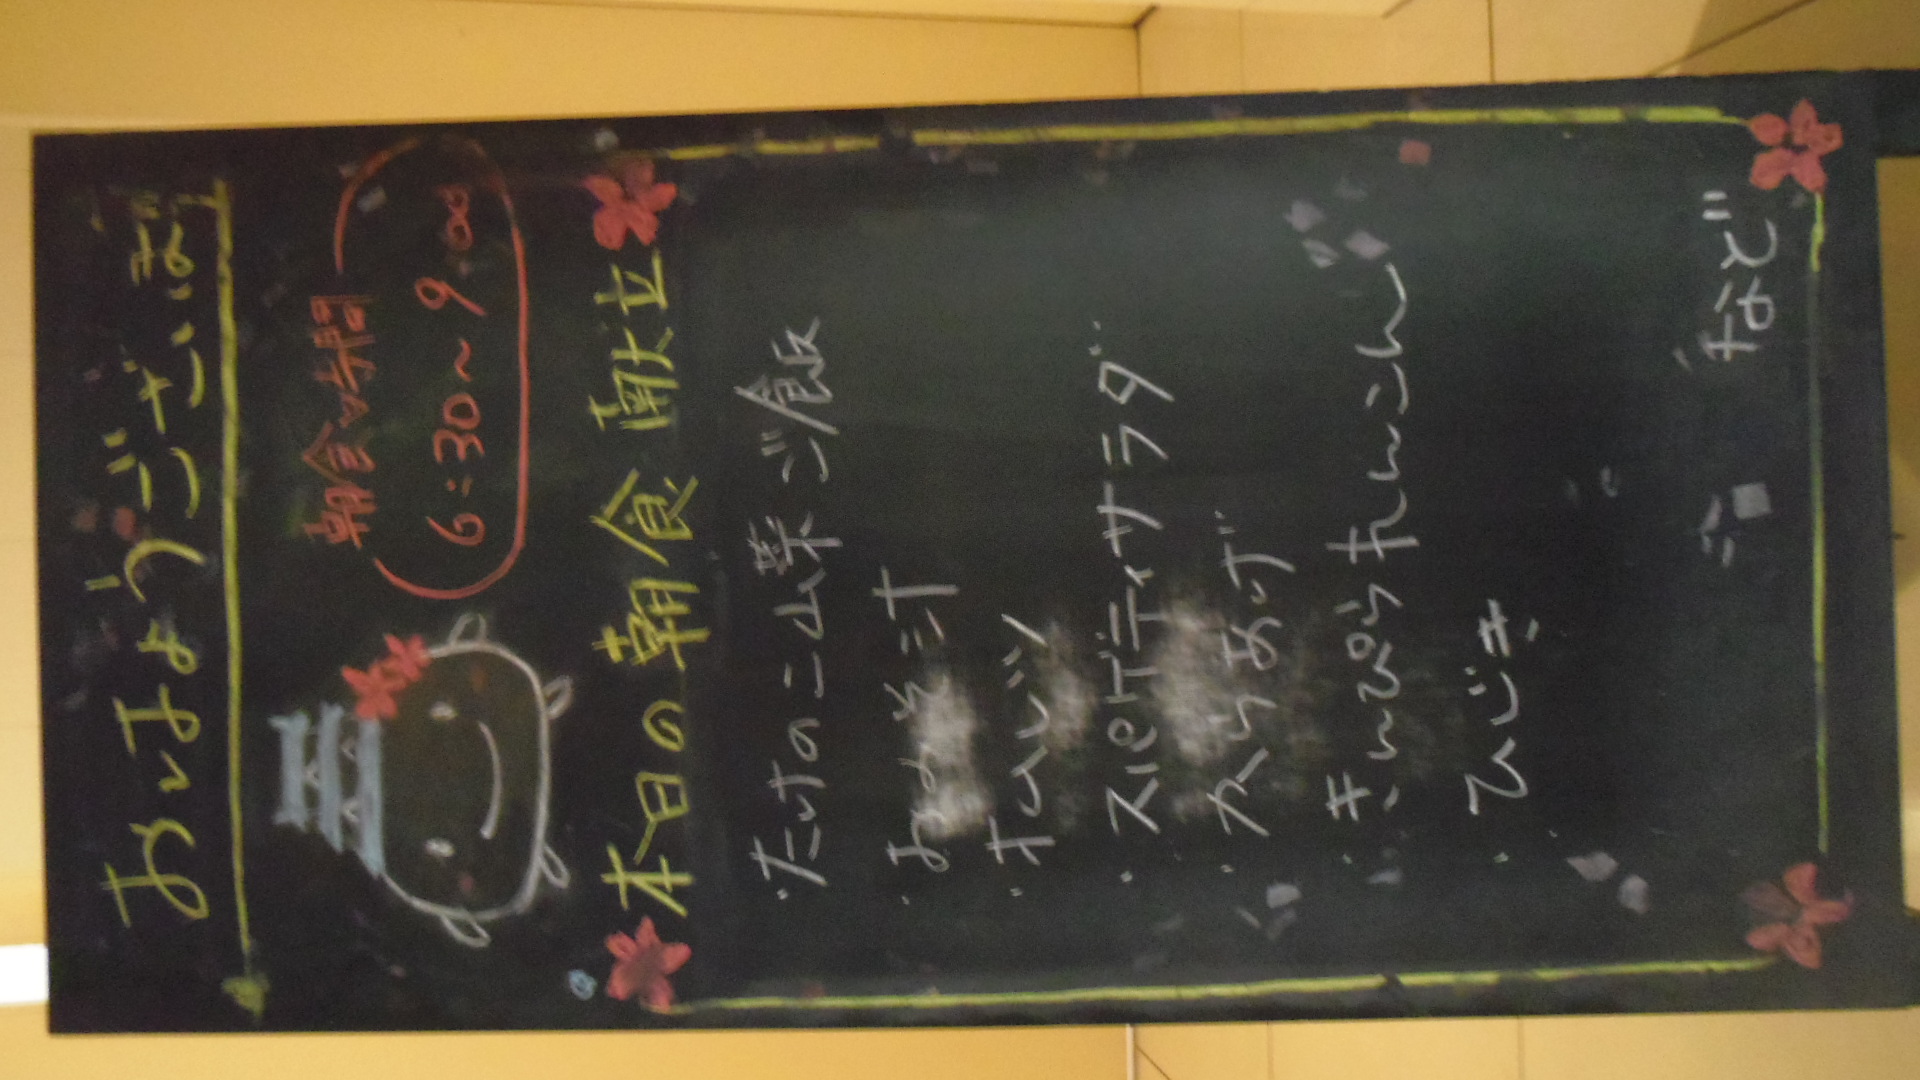 おはようございま
朝食時間
6:30～9:00
本日の朝食献立
・たけのこ山菜ご飯
・おみそ汁
・オムレツ
・スパゲティサラダ
・からあげ
・きんぴられんこん
・ひじき
など